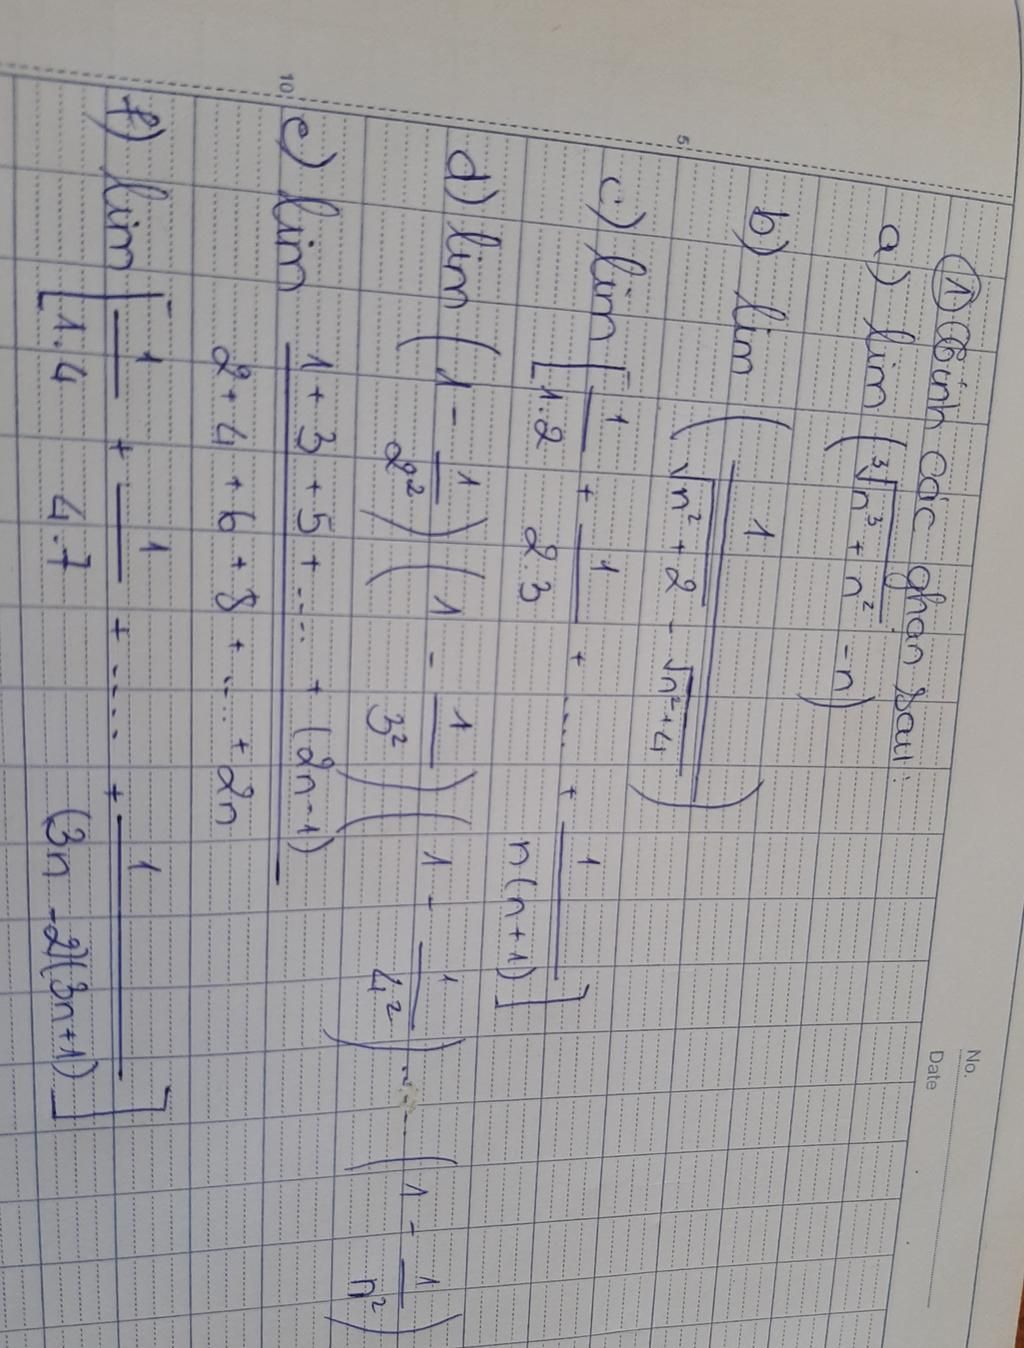 No.
Date
① Tính các ghạn sau:
a) lim (∛(n³ + n²) - n)
b) lim ( 1 / (√(n² + 2) - √(n² + 4)) )
5
c) lim [ 1/1.2 + 1/2.3 + .... + 1/n(n+1) ]
d) lim (1 - 1/2²)(1 - 1/3²)(1 - 1/4²) ..... (1 - 1/n²)
10
e) lim (1 + 3 + 5 + .... + (2n-1)) / (2 + 4 + 6 + 8 + .... + 2n)
f) lim [ 1/1.4 + 1/4.7 + .... + 1/(3n - 2)(3n+1) ]